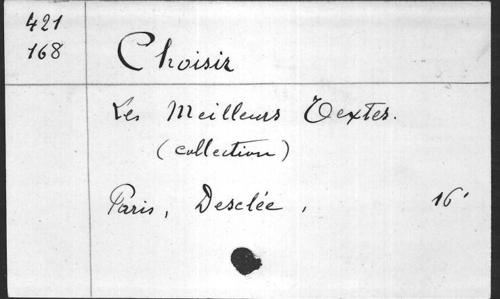 421
168
Choisir
Les Meilleurs Textes.
(collection)
Paris, Desclée, 16°